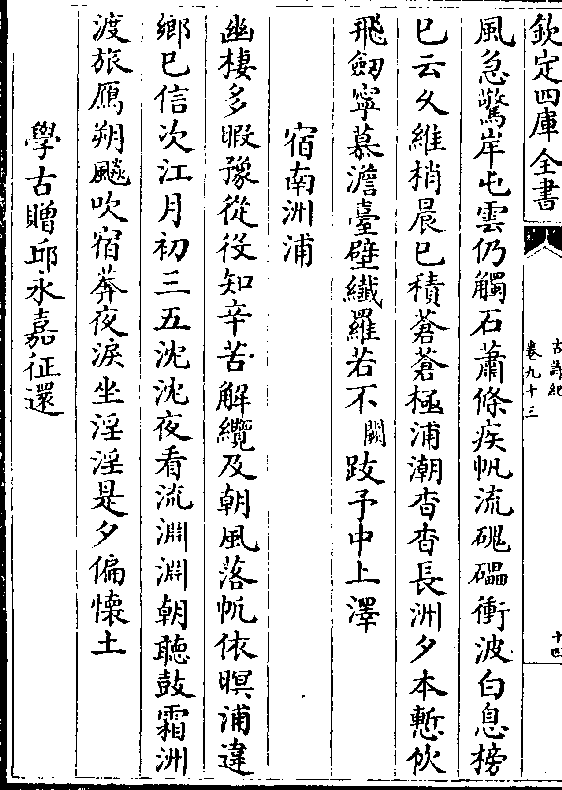 欽定四庫全書
古詩紀
卷九十三
十四
風急驚岸屯雲仍觸石蕭條疾帆流磈礧衝波白息榜
已云久維梢晨已積蒼蒼極浦潮杳杳長洲夕本慙佽
飛劒寧慕澹臺璧纖羅若不闕跂予中上澤
宿南洲浦
幽棲多暇豫從役知辛苦解纜及朝風落帆依暝浦違
鄉已信次江月初三五沈沈夜看流淵淵朝聽鼓霜洲
渡旅鴈朔飈吹宿莽夜淚坐淫淫是夕偏懷土
學古贈邱永嘉征還